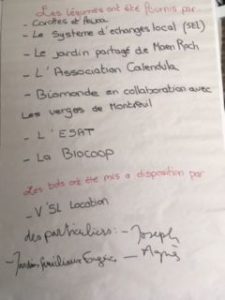 Les légumes ont été fournis par
- Carottes et
- Le système d'échanges local (SEL)
- Le jardin partagé de Moen Roch
- L'Association Calendula
- Biomonde en collaboration avec
Les vergers de Montreuil
- L'ESAT
- La Biocoop
Les bols ont été mis a disposition par
- V'SL Location
des particuliers : - Joseph
- Jardins familiaux - Agnès